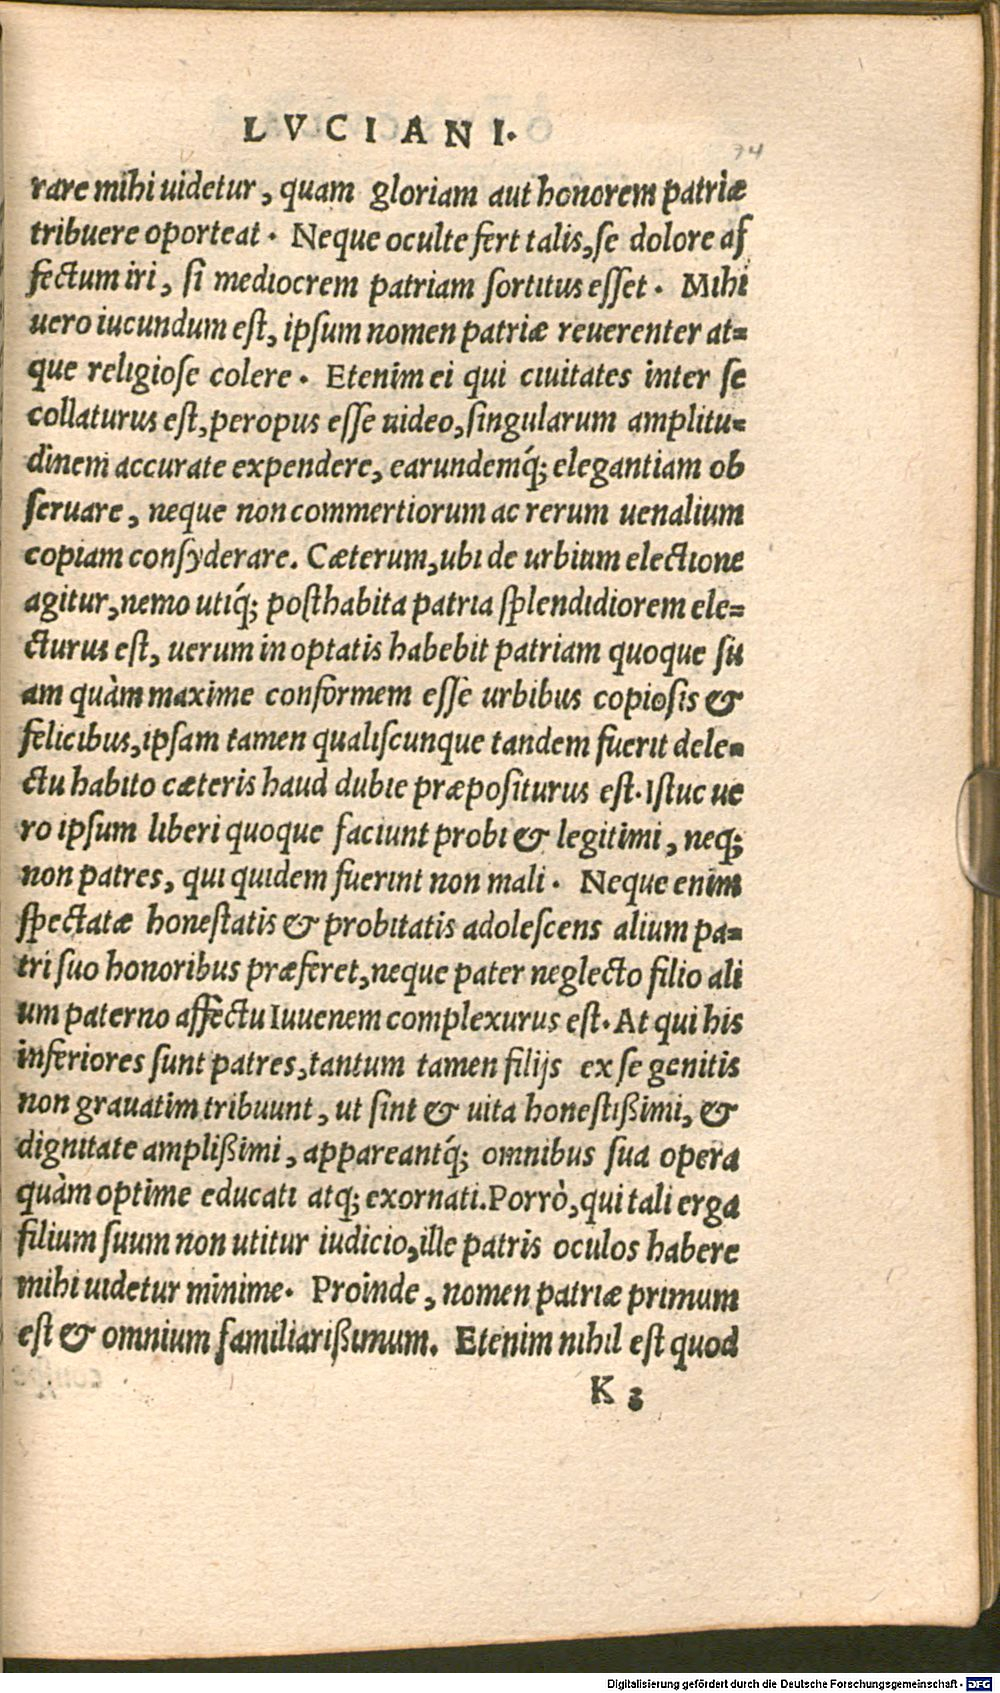 LVCIANI.
74
rare mihi uidetur, quam gloriam aut honorem patriæ
tribuere oporteat. Neque oculte fert talis, ſe dolore af
fectum iri, ſi mediocrem patriam ſortitus eſſet. Mihi
uero iucundum eſt, ipſum nomen patriæ reuerenter at=
que religioſe colere. Etenim ei qui ciuitates inter ſe
collaturus eſt, peropus eſſe uideo, ſingularum amplitu=
dinem accurate expendere, earundemq́; elegantiam ob
ſeruare, neque non commertiorum ac rerum uenalium
copiam conſyderare. Cæterum, ubi de urbium electione
agitur, nemo utiq́; poſthabita patria ſplendidiorem ele=
cturus eſt, uerum in optatis habebit patriam quoque ſu
am quàm maxime conformem eſſe urbibus copioſis &
felicibus, ipſam tamen qualiſcunque tandem fuerit dele=
ctu habito cæteris haud dubie præpoſiturus eſt. Iſtuc ue
ro ipſum liberi quoque faciunt probi & legitimi, neq;
non patres, qui quidem fuerint non mali. Neque enim
ſpectatæ honeſtatis & probitatis adoleſcens alium pa=
tri ſuo honoribus præferet, neque pater neglecto filio ali
um paterno affectu Iuuenem complexurus eſt. At qui his
inferiores ſunt patres, tantum tamen filijs ex ſe genitis
non grauatim tribuunt, ut ſint & uita honeſtißimi, &
dignitate amplißimi, appareantq́; omnibus ſua opera
quàm optime educati atq; exornati. Porrò, qui tali erga
filium ſuum non utitur iudicio, ille patris oculos habere
mihi uidetur minime. Proinde, nomen patriæ primum
eſt & omnium familiarißimum. Etenim nihil eſt quod
K 3
Digitalisierung gefördert durch die Deutsche Forschungsgemeinschaft - DFG